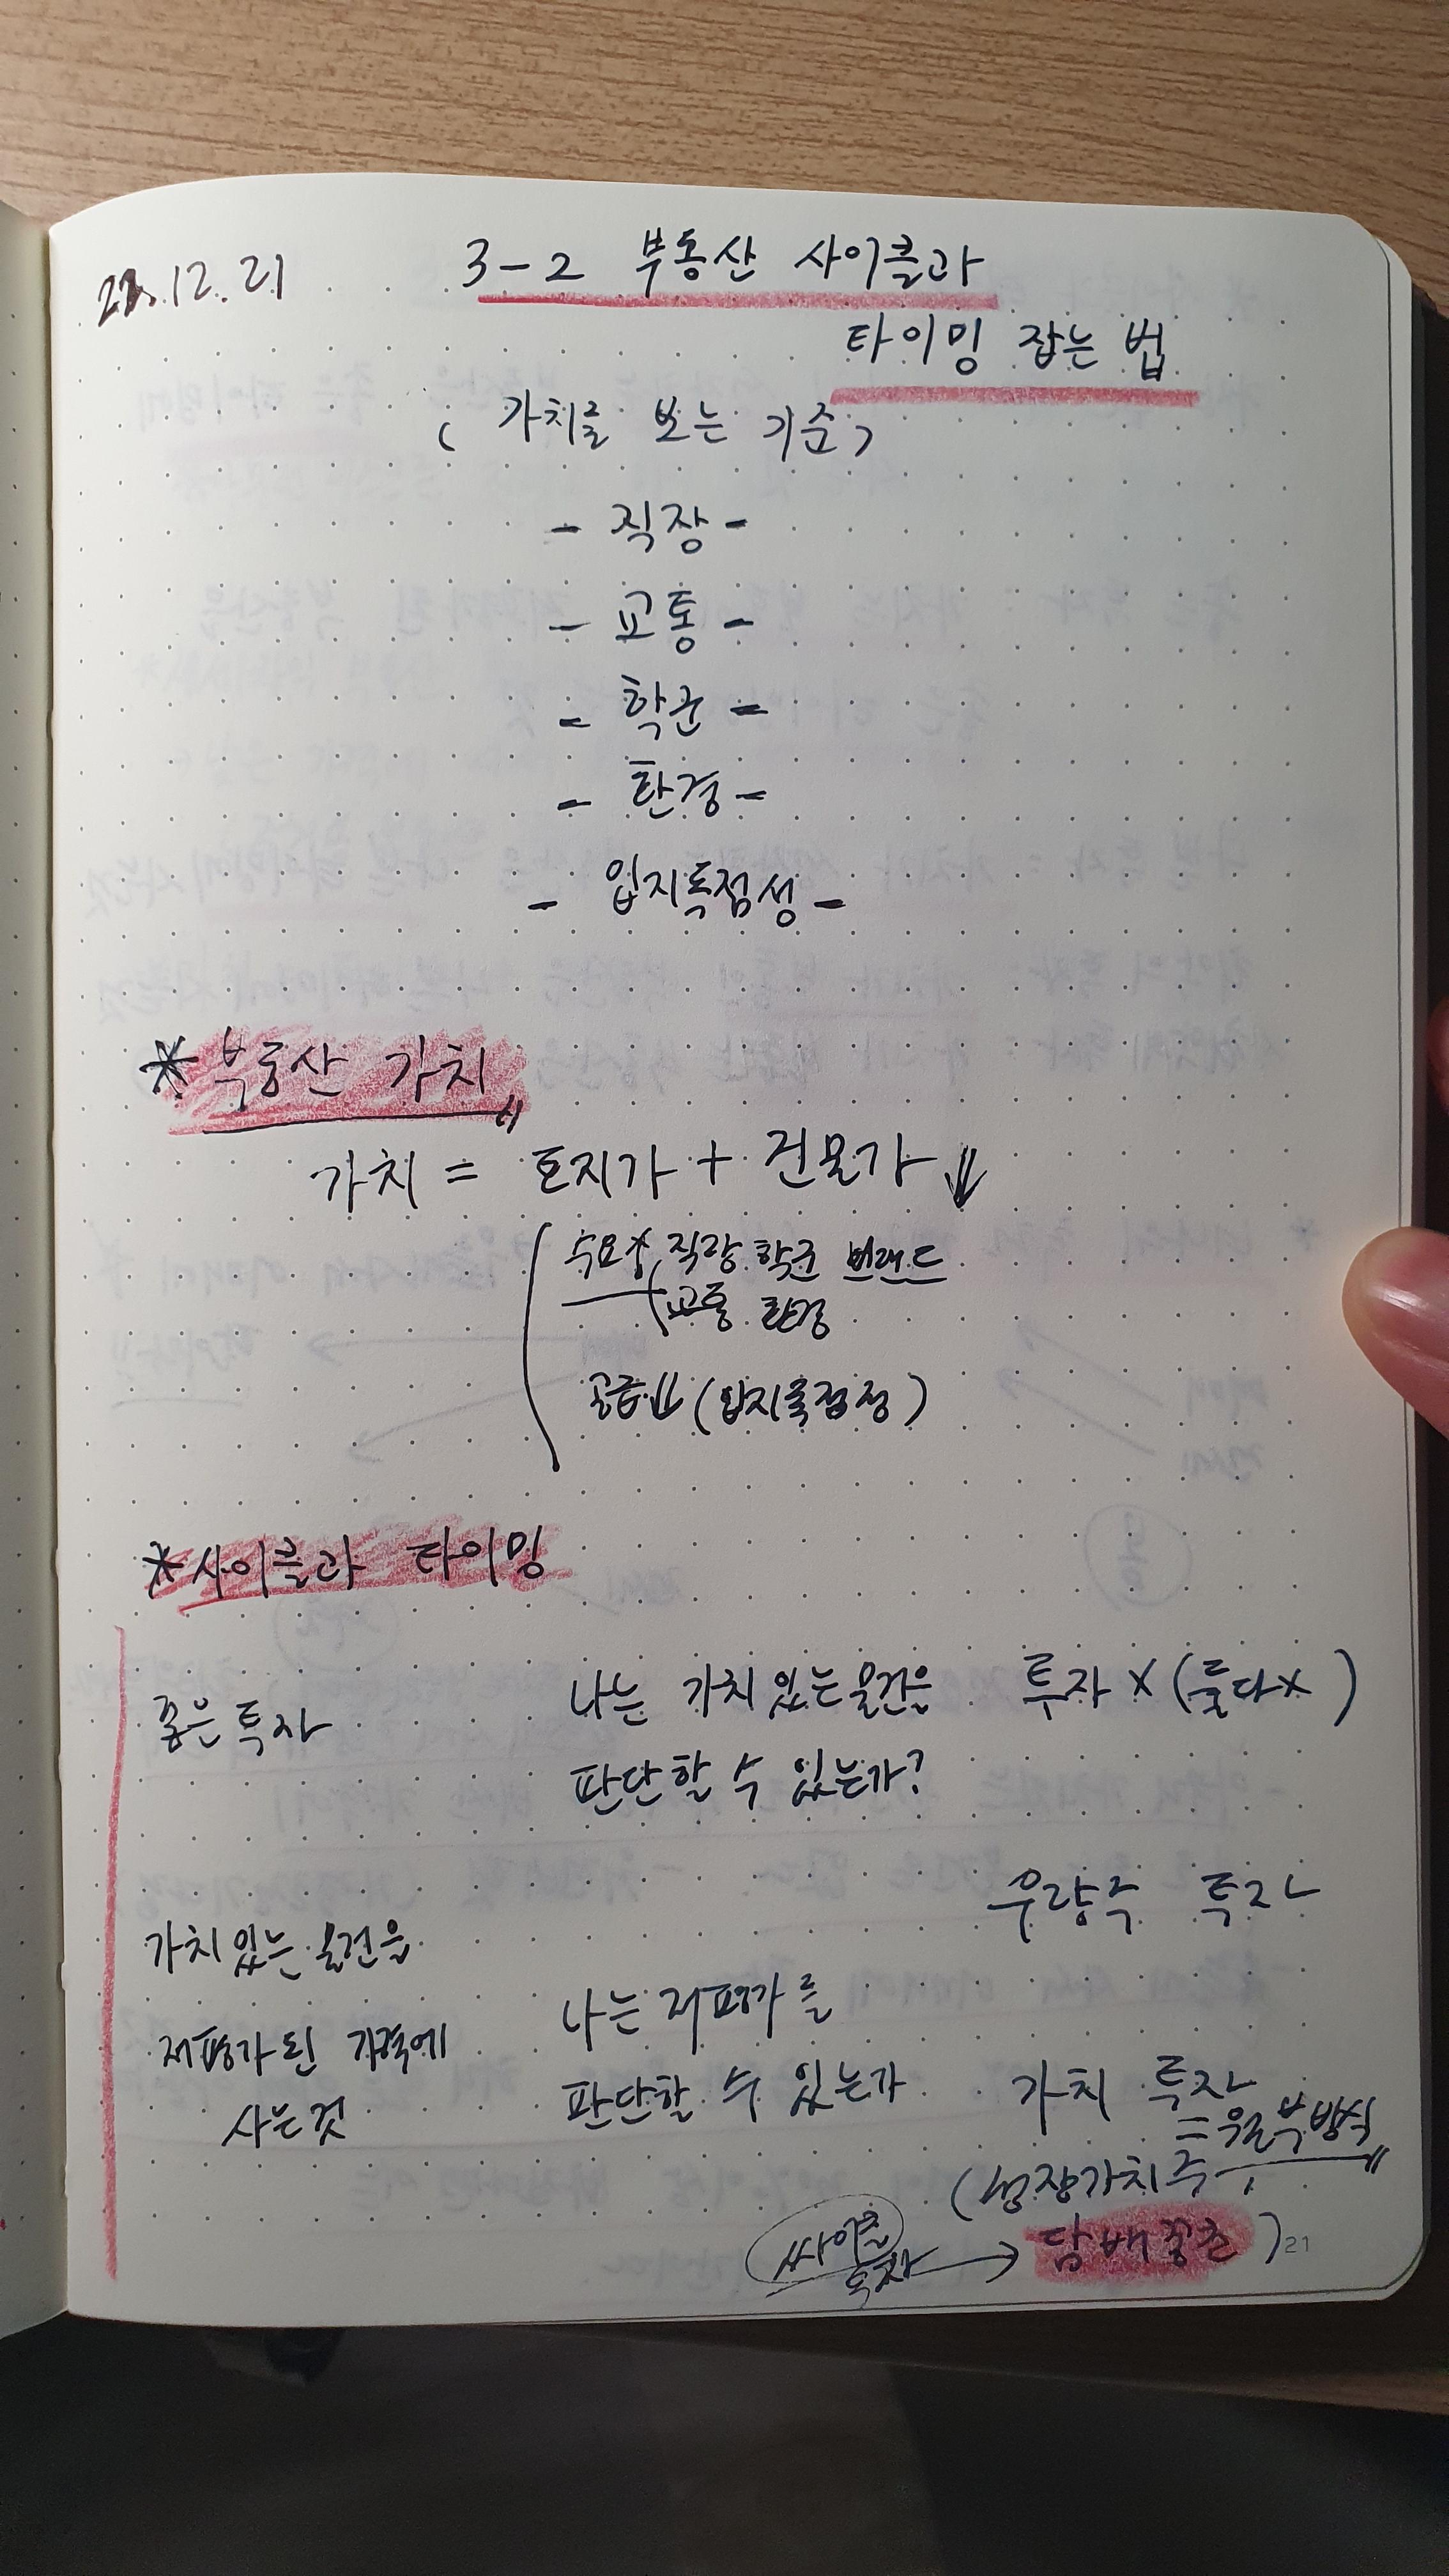 .12.21
3-2 부동산 사이클과
타이밍 잡는 법
( 가치를 보는 기준)
- 직장 -
- 교통 -
- 학군 -
- 환경 -
- 입지독점성 -
* 부동산 가치
가치 = 토지가 + 건물가 ↓
수요↑ 직장 학군 브랜드
교통 환경
공급↓ (입지독점성)
* 사이클과 타이밍
좋은 투자
가치 있는 물건을
저평가 된 가격에
사는 것
나는 가치 있는 물건을
판단할 수 있는가?
나는 저평가를
판단할 수 있는가
투자 X (둘다X)
우량주 투자
가치 투자
= 월부방식
(성장가치주
싸이클
투자 → 담배꽁초 )
21